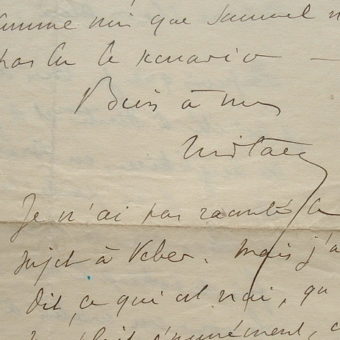 comme moi que Samuel n
pas lu le scenario —
Bien à vous
Je n'ai pas raconté le
sujet à Veber. Mais j'a
dit, ce qui est vrai, qu